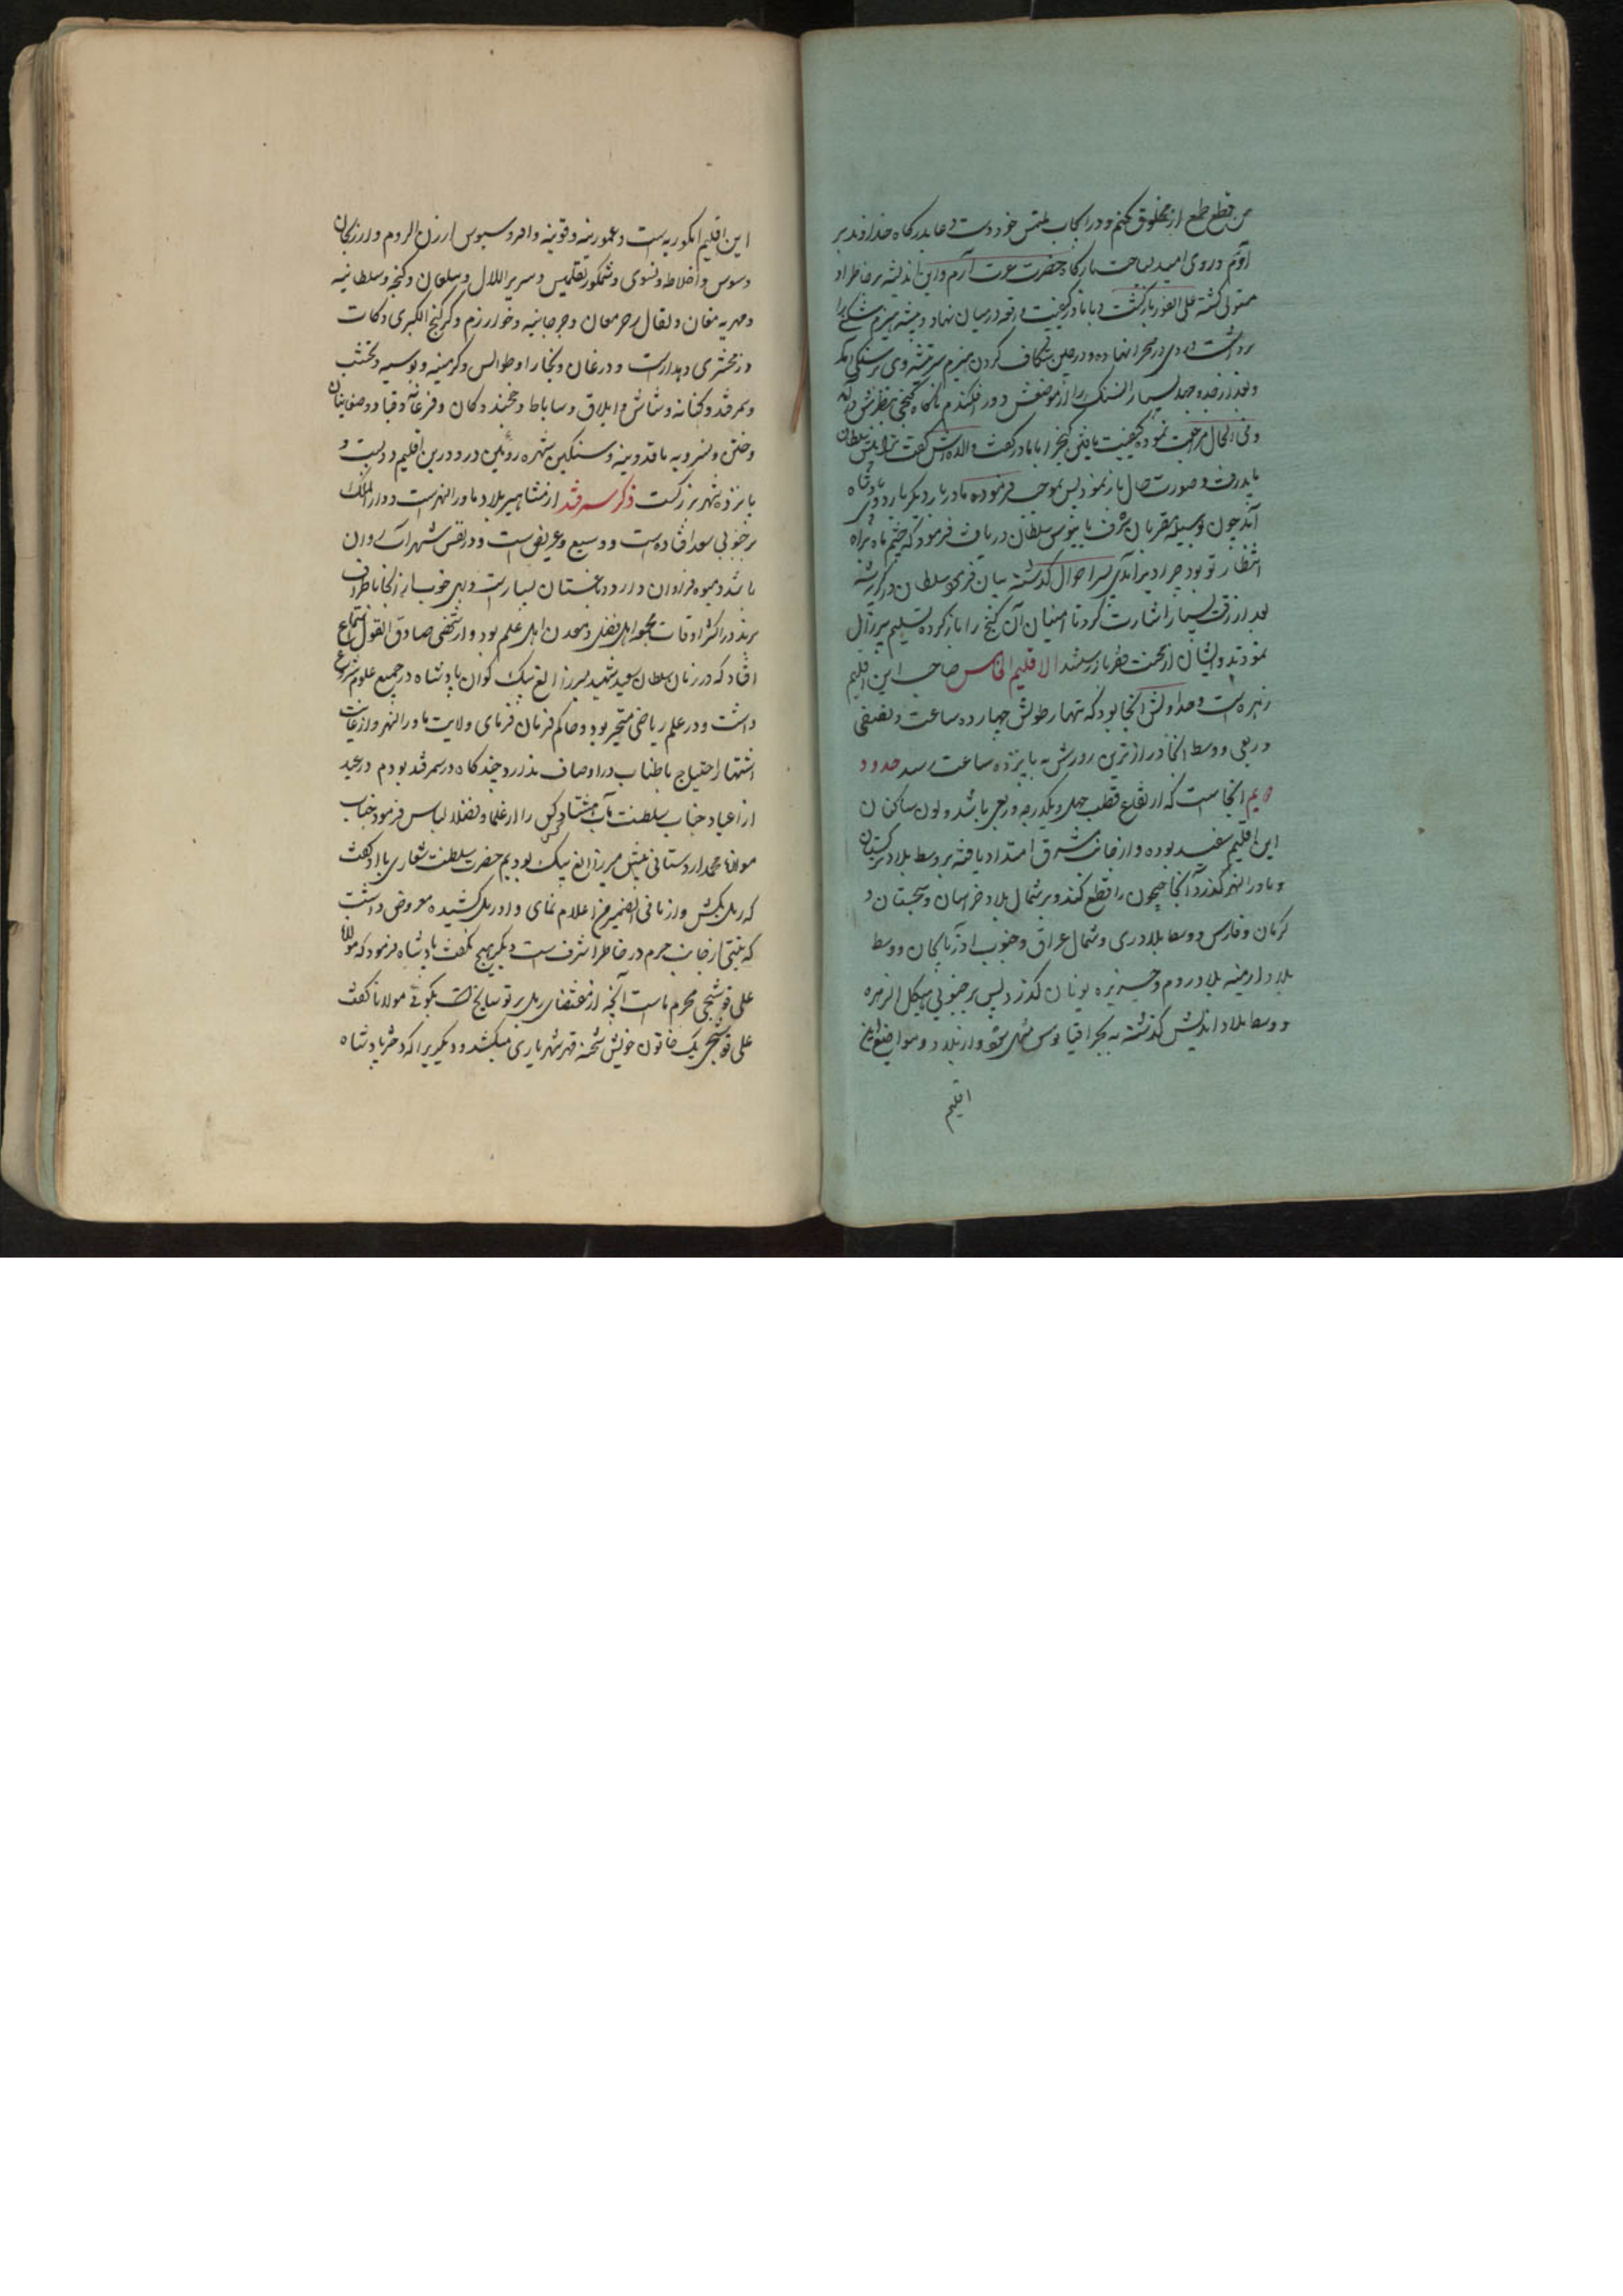 من قطع طمع از مخلوق کنم و در انجاب ملتمس خود دست دعا بدرگاه خداوند بر
آورم و روی امید بساحت بارگاه حضرت عزت آرم و این اندیشه بر خاطر او
مستولی گشته علی الفور بازگشت و با مادر کیفیت واقعه در میان نهاد و تیشه هیزم شکنی را
برداشت و روی در صحرا نهاده و در حین شکاف کردن هیزم سر تیشه وی بر سنگی آمد
و بعد از جد و جهد بسیار آن سنگ را از موضعش دور افکندم ناگاه گنجی بنظرش در آمد
و فی الحال مراجعت نموده کیفیت یافتن گنج را با مادر گفت والده اش گفت ترا پیش سلطان
باید رفت و صورت حال باز نمود پس بموجب فرموده مادر بار دیگر باردوی پادشاه
آمد چون بوسیله مقربان شرف پایبوس سلطان دریافت فرمود که چشم ما براه
انتظار تو بود چرا دیر آمدی پسر احوال گذشته بیان فرمود سلطان در گریه شد
بعد از رقت بسیار اشارت کرد تا امینان آن گنج را باز کرده تسلیم پیر زال
نمودند و ایشان از محنت فقر باز رستند الاقلیم الخامس صاحب این اقلیم
زهره است و مبداء اولش آنجا بود که نهار طولش چهارده ساعت و نصفی
و ربعی و وسط آنجا درازترین روزش به پانزده ساعت رسد حدود
آنجا است که ارتفاع قطب چهل و یکدرجه و ربعی باشد و لون ساکنان
این اقلیم سفید بوده و از جانب شرق امتداد یافته بر وسط بلاد ترکستان
و ماورالنهر گذرد آنجا جیحون را قطع کند و بر شمال بلاد خراسان و سجستان و
کرمان و فارس و وسط بلاد ری و شمال عراق و جنوب آذربایجان و وسط
بلاد ارمنیه بلاد روم و جزیره یونان گذرد پس بر جنوبی هیکل الزهره
و وسط بلاد اندلس گذشته به بحر اقیانوس منتهی شود و از بلاد و مواضع این
اقلیم
این اقلیم انکوریه است و عموریه و قونیه و اقرو سیوس ارزن الروم و ارزنجان
و سوس و اخلاط و نسوی و شمکور تفلیس و سریر اللال و سلقان و گنجه و سلطانیه
و جرجانیه و خوارزم و کرکنج الکبری و کات
و زمخشری و درغان و بخارا و طوالس و کرمینه و نخشب
و سمرقند و کشانه و شاش و ایلاق و ساباط و خجند و کان و فرغانه و قبا و
و ختن و و سنگین شهره روئین در و درین اقلیم دویست و
پانزده شهر بزرگست ذکر سمرقند از مشاهیر بلاد ماورالنهرست و دارالملک
بر جنوبی سغد افتاده است و وسیع و عریض است و در نفس شهر آب روان
باشد و میوه فراوان دارد و باغستان بسیار است و بهی خوب از آنجا باطراف
برند در اکثر اوقات مجمع اهل فضل و معدن اهل علم بود و از شخصی صادق القول استماع
افتاد که در زمان سلطان سعید شهید میرزا الغ بیک کوران پادشاه در جمیع علوم شروع
داشت و در علم ریاضی متبحر بود و حاکم فرمان فرمای ولایت ماورالنهر و از غایت
اشتهار احتیاج باطناب در اوصاف ندارد چندگاه در سمرقند بودم در عید
از اعیاد جناب سلطنت مآب هشتاد کس را از علما و فضلا لباس فرمود جناب
مولانا محمد اردستانی پیش میرزا الغ بیک بودیم حضرت سلطنت شعاری با او گفت
که رمل بکش و از مافی الضمیر من اعلام نمای و او رمل کشیده معروض داشت
که نیتی از جانب حرم در خاطر اشرف است دیگر هیچ نگفت پادشاه فرمود که مولانا
علی قوشجی محرم ماست آنچه از مقتضای رمل بر تو سانح است بگوی مولانا گفت
علی قوشجی یک خاتون خویش شحنه قهر شهریاری میکشد و دیگریرا که دختر پادشاه